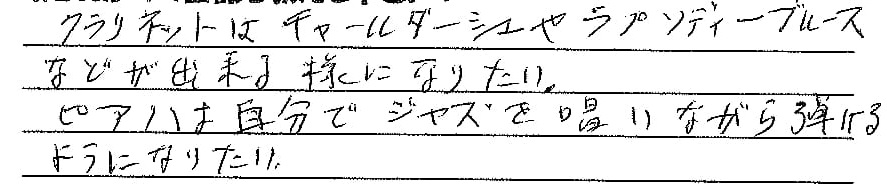 クラリネットはチャールダーシュやラプソディーブルース
などが出来る様になりたい。
ピアノは自分でジャズを唱いながら弾ける
ようになりたい。